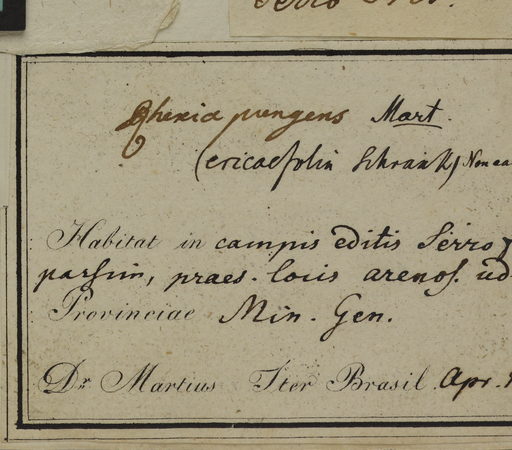 Serro Frio.
Rhexia pungens Mart.
(ericaefolia Schrank) Non
Habitat in campis editis Serro
passim, praes. locis arenos. ud
Provinciae Min. Gen.
Dr. Martius Iter Brasil. Apr.